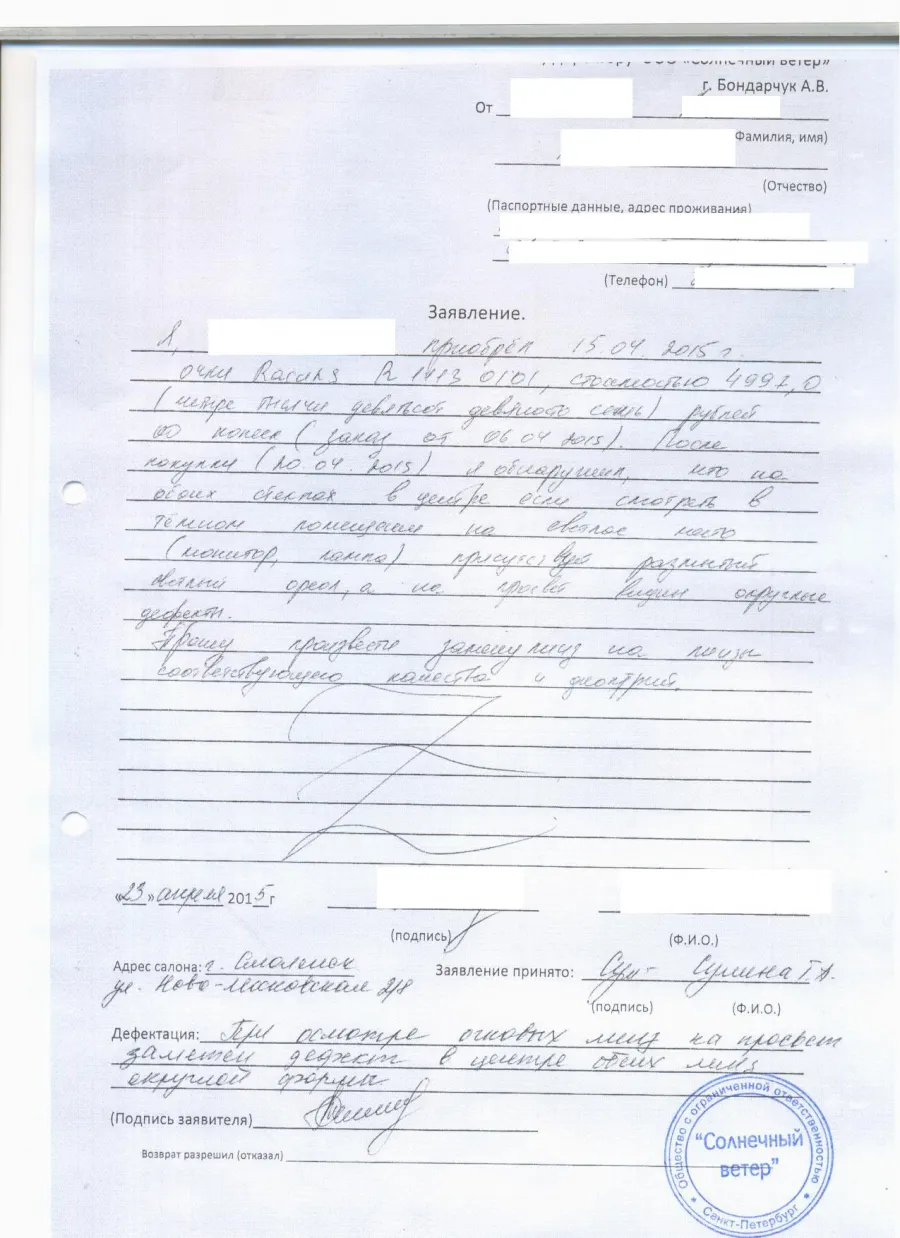 ООО «Солнечный ветер»
г. Бондарчук А.В.
От
Фамилия, имя)
(Отчество)
(Паспортные данные, адрес проживания)
(Телефон)
Заявление.
Я, приобрёл 15.04.2015 г.
очки R 1413 0101, стоимостью 4997,0
(четыре тысячи девятьсот девяносто семь) рублей
00 копеек (заказ от 06 04 2015). После
покупки (20.04.2015) я обнаружил, что на
обоих стеклах в центре если смотреть в
тёмном помещении на светлое место
(монитор, лампа) присутствует размытый
ореол, а на просвет видны округлые
дефекты.
Прошу произвести замену линз на линзы
соответствующего качества и диоптрий.
«23» апреля 2015 г
(подпись)
(Ф.И.О.)
Адрес салона: г. Смоленск
ул. Ново-Московская 2/8
Заявление принято: Сулина Т.А.
(подпись) (Ф.И.О.)
Дефектация: При осмотре очковых линз на просвет
заметен дефект в центре обеих линз
округлой формы
(Подпись заявителя)
Возврат разрешил (отказал)
Общество с ограниченной ответственностью
"Солнечный
ветер"
* Санкт-Петербург *